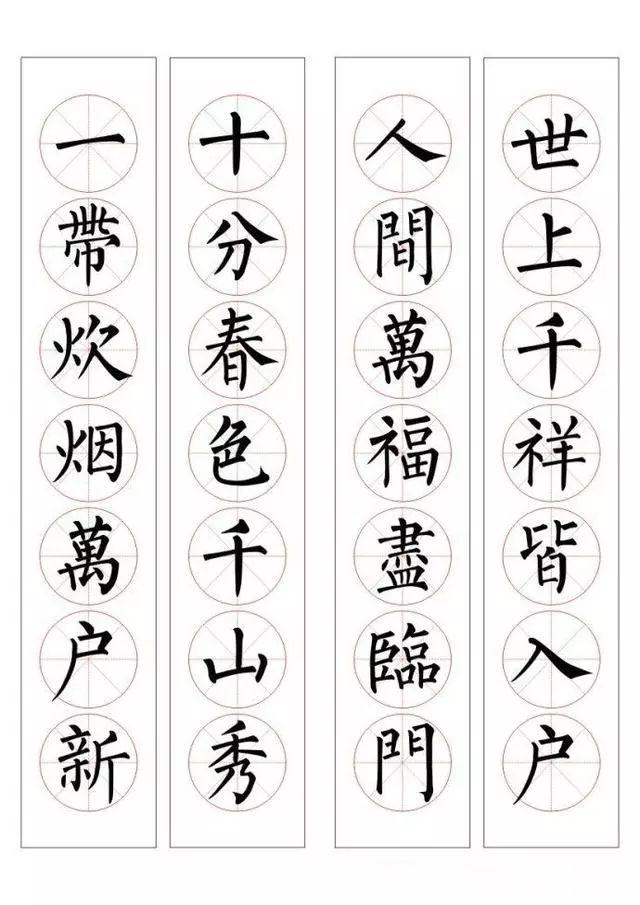 世上千祥皆入户
人間萬福盡臨門
十分春色千山秀
一帶炊烟萬户新